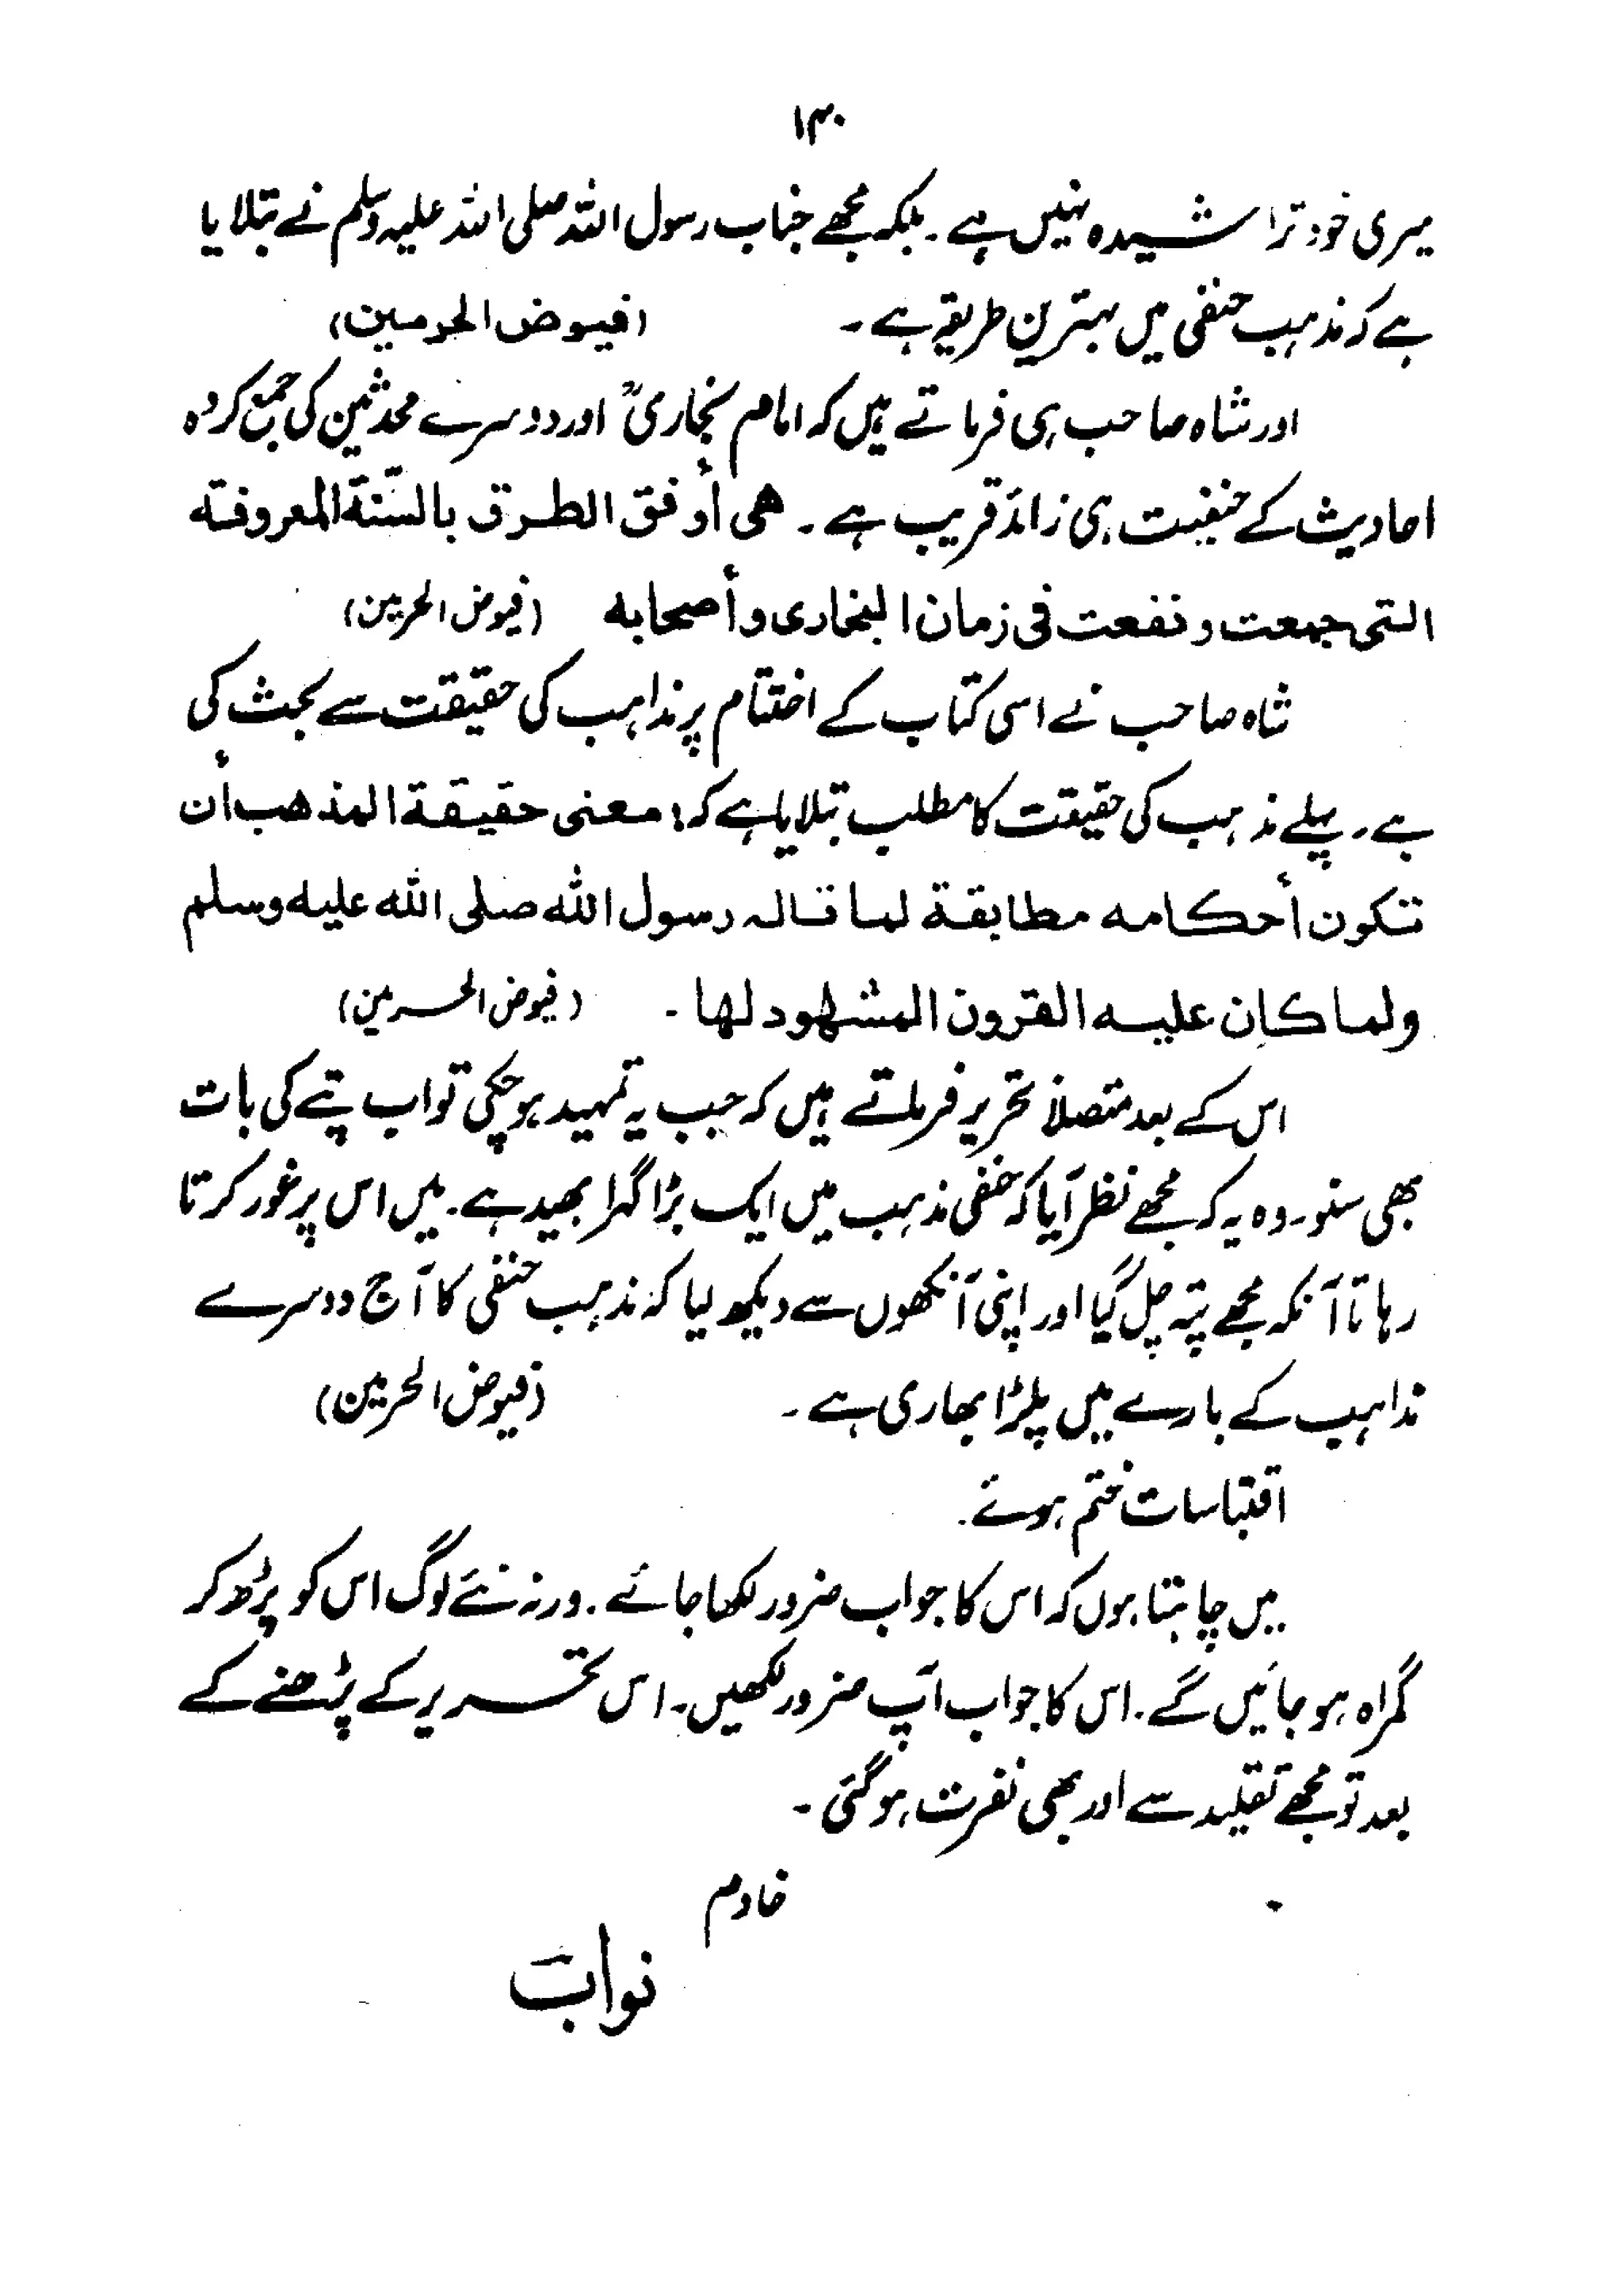 ۱۳۰
میری خود تراشیدہ نہیں ہے۔ بلکہ مجھے جناب رسول اللہ صلی اللہ علیہ وسلم نے بتلایا
ہے کہ مذہب حنفی میں بہترین طریقہ ہے۔ (فیوض الحرمین)
اور شاہ صاحب ہی فرماتے ہیں کہ امام بخاریؒ اور دوسرے محدثین کی جمع کردہ
احادیث کے حنفیت ہی زائد قریب ہے۔ ھی أوفق الطرق بالسّنة المعروفة
التی جمعت و نفعت فی زمان البخاری وأصحابه (فیوض الحرمین)
شاہ صاحب نے اسی کتاب کے اختتام پر مذاہب کی حقیقت سے بحث کی
ہے۔ پہلے مذہب کی حقیقت کا مطلب بتلایا ہے کہ: معنی حقیقة المذھب أن
تکون أحکامه مطابقة لما قاله رسول اللہ صلی اللہ علیه وسلم
ولما کان علیه القرون المشهود لها۔ (فیوض الحرمین)
اس کے بعد متصلاً تحریر فرماتے ہیں کہ جب یہ تمہید ہو چکی تو اب پتے کی بات
بھی سنو۔ وہ یہ کہ مجھے نظر آیا کہ حنفی مذہب میں ایک بڑا گہرا بھید ہے۔ میں اس پر غور کرتا
رہا تا آنکہ مجھے پتہ چل گیا اور اپنی آنکھوں سے دیکھ لیا کہ مذہب حنفی کا آج دوسرے
مذاہب کے بارے میں پلڑا بھاری ہے۔ (فیوض الحرمین)
اقتباسات ختم ہوئے۔
میں چاہتا ہوں کہ اس کا جواب ضرور لکھا جائے۔ ورنہ نئے لوگ اس کو پڑھ کر
گمراہ ہو جائیں گے۔ اس کا جواب آپ ضرور لکھیں۔ اس تحریر کے پڑھنے کے
بعد تو مجھے تقلید سے اور بھی نفرت ہو گئی۔
خادم
نواب